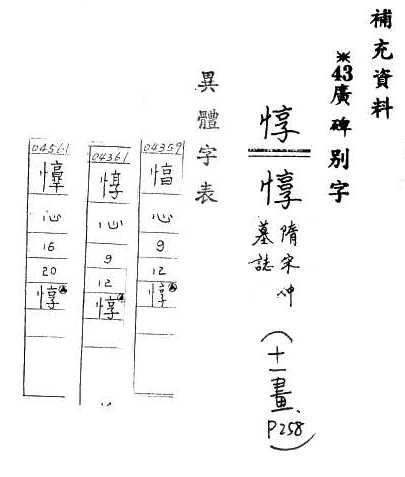 補充資料
※43廣碑別字
惇
惇
隋宋仲
墓誌
(十一畫、
P258)
異體字表
04359
心
9
12
惇
04361
惇
心
9
12
惇
04561
心
16
20
惇